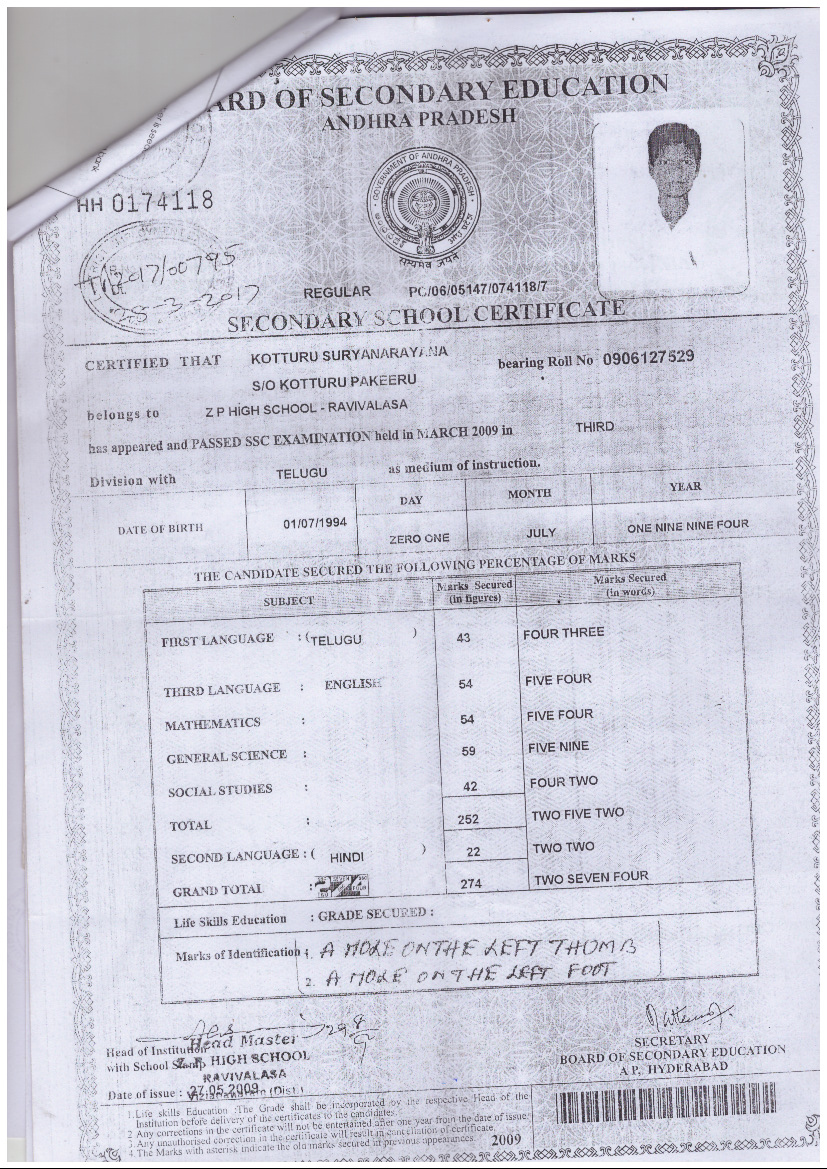 ARD OF SECONDARY EDUCATION
ANDHRA PRADESH
HH 0174118
GOVERNMENT OF ANDHRA PRADESH
सत्यमेव जयते
2017/00795
28-3-2017
REGULAR PC/06/05147/074118/7
SECONDARY SCHOOL CERTIFICATE
CERTIFIED THAT KOTTURU SURYANARAYANA bearing Roll No 0906127529
S/O KOTTURU PAKEERU
belongs to Z P HIGH SCHOOL - RAVIVALASA
has appeared and PASSED SSC EXAMINATION held in MARCH 2009 in THIRD
Division with TELUGU as medium of instruction.
DATE OF BIRTH 01/07/1994 DAY MONTH YEAR
ZERO ONE JULY ONE NINE NINE FOUR
THE CANDIDATE SECURED THE FOLLOWING PERCENTAGE OF MARKS
SUBJECT Marks Secured (in figures) Marks Secured (in words)
FIRST LANGUAGE : ( TELUGU ) 43 FOUR THREE
THIRD LANGUAGE : ENGLISH 54 FIVE FOUR
MATHEMATICS : 54 FIVE FOUR
GENERAL SCIENCE : 59 FIVE NINE
SOCIAL STUDIES : 42 FOUR TWO
TOTAL : 252 TWO FIVE TWO
SECOND LANGUAGE : ( HINDI ) 22 TWO TWO
GRAND TOTAL : 274 274 TWO SEVEN FOUR
Life Skills Education : GRADE SECURED :
Marks of Identification 1. A MOLE ON THE LEFT THOMB
2. A MOLE ON THE LEFT FOOT
Head Master
Head of Institution
with School Stamp HIGH SCHOOL
RAVIVALASA
Date of issue : 27.05.2009 (Dist.)
SECRETARY
BOARD OF SECONDARY EDUCATION
A.P., HYDERABAD
1.Life skills Education :The Grade shall be incorporated by the respective Head of the
Institution before delivery of the certificates to the candidates.
2 Any corrections in the certificate will not be entertained after one year from the date of issue.
3.Any unauthorised correction in the certificate will result in cancellation of certificate.
4.The Marks with asterisk indicate the old marks secured in previous appearances. 2009